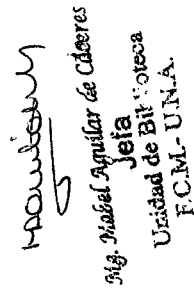 Mg. Mabel Aguilar de Cáceres
Jefa
Unidad de Biblioteca
F.C.M.- U.N.A.